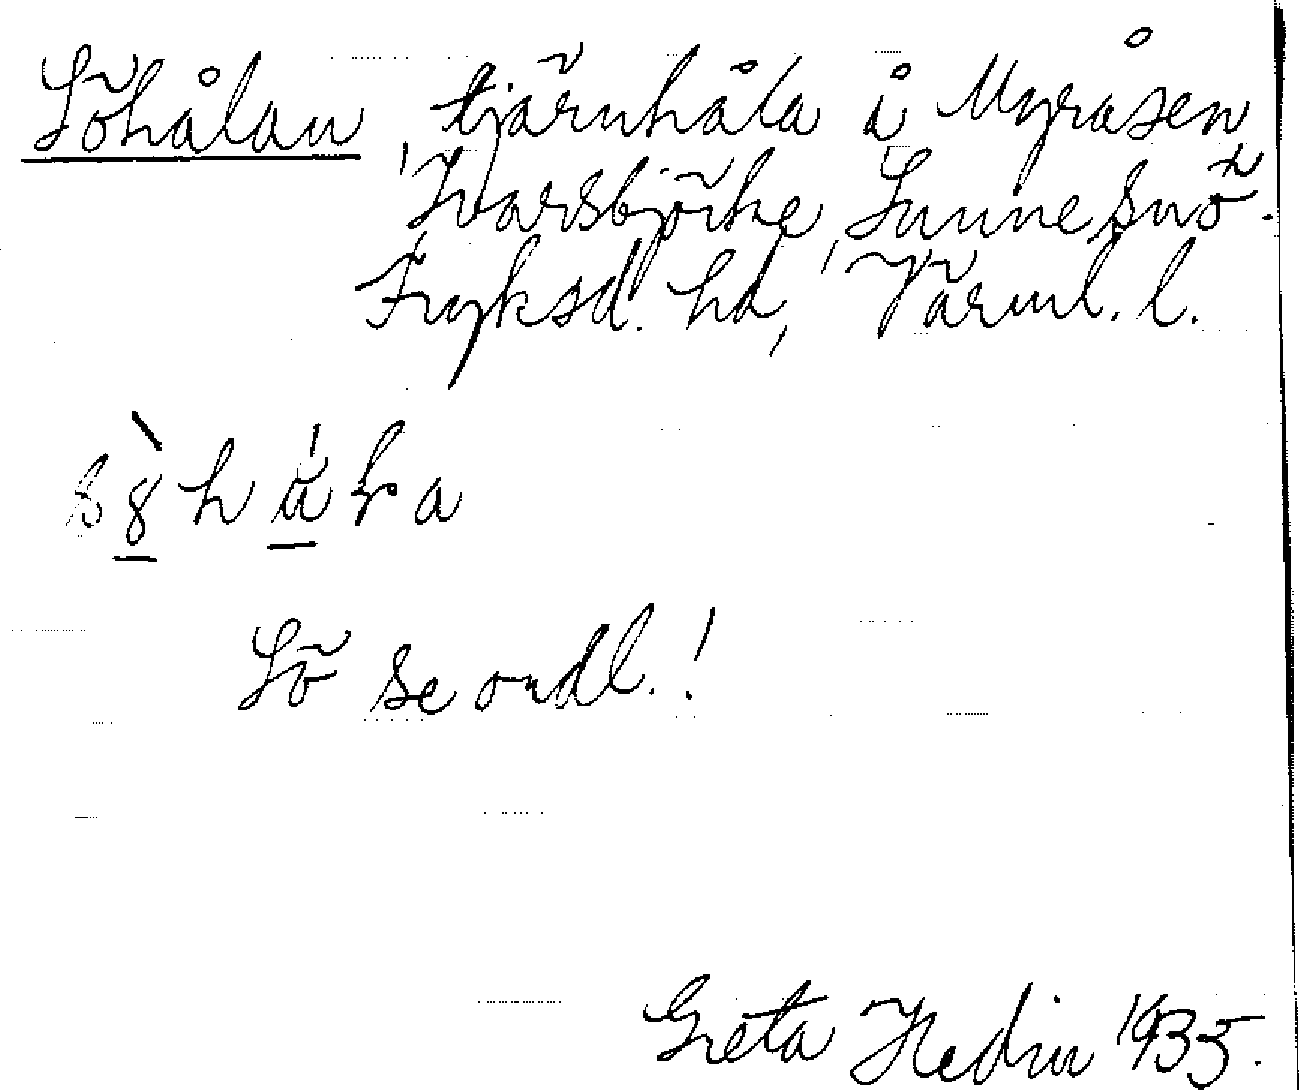 Söhålan, tjärnhåla å Myråsen
Ivarsbjörke, Sunne sn
Fryksd. hd, Värml. l.
Sö se ordl.!
Greta Hedin 1935.